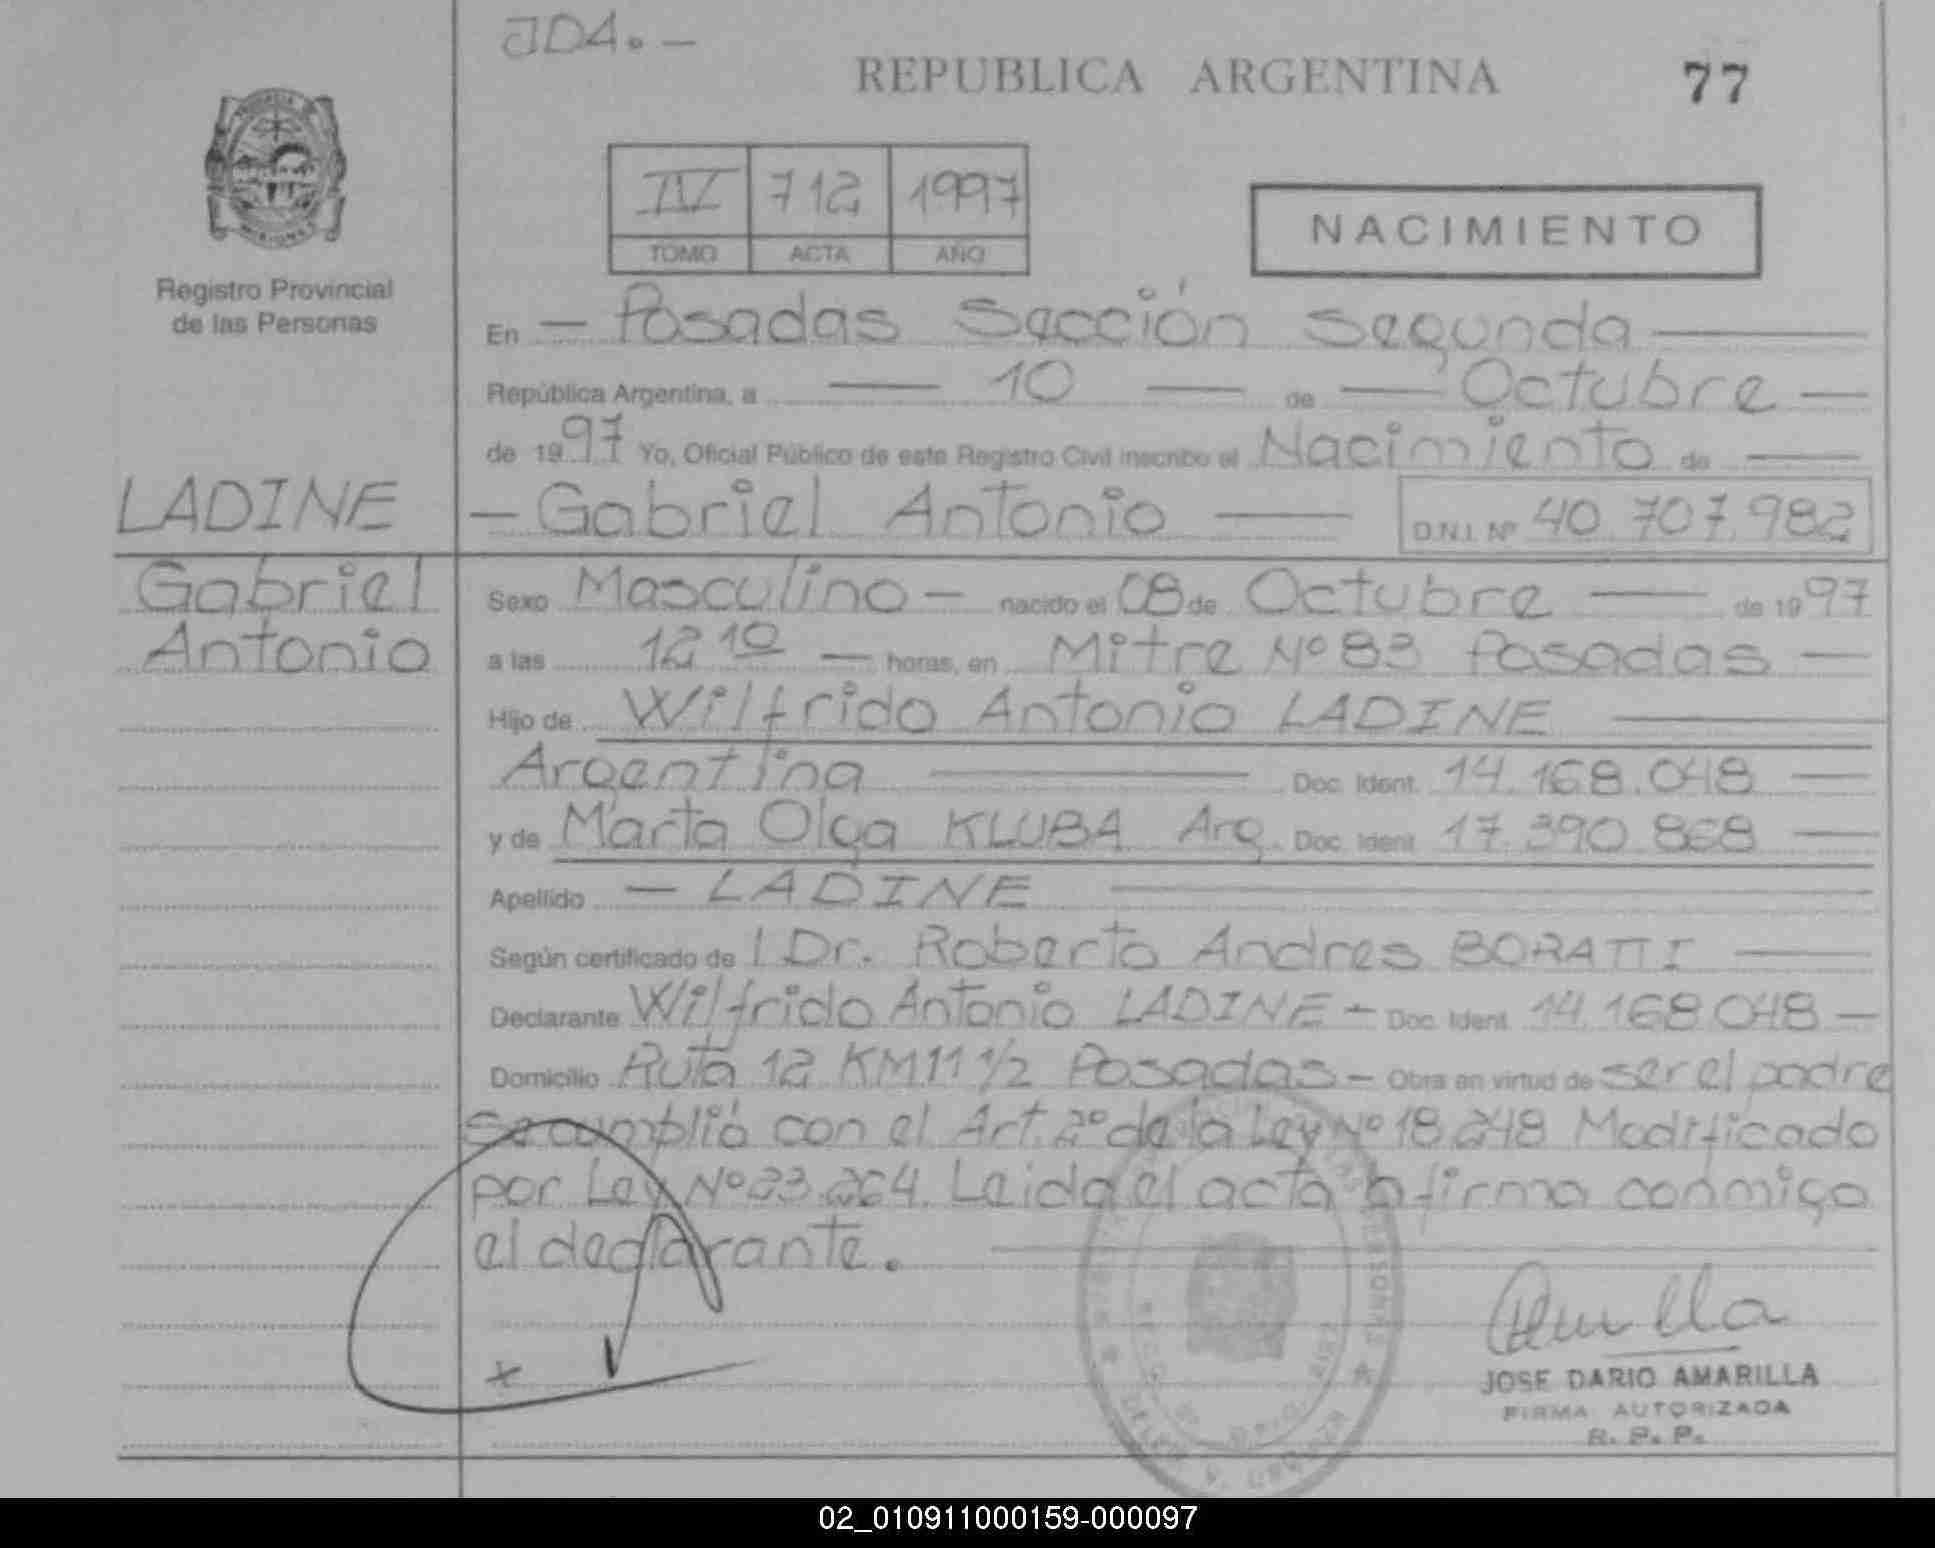 JDA. —
REPUBLICA ARGENTINA 77
IV 712 1997
TOMO ACTA AÑO
NACIMIENTO
MISIONES
Registro Provincial
de las Personas
En — Posadas Sección Segunda —
República Argentina, a — 10 — de — Octubre —
de 1997 Yo, Oficial Público de este Registro Civil inscribo el Nacimiento de —
LADINE — Gabriel Antonio — D.N.I. Nº 40.707.982
Gabriel Sexo Masculino — nacido el 08 de Octubre — de 1997
Antonio a las 12 10 — horas, en Mitre Nº 83 Posadas —
Hijo de Wilfrido Antonio LADINE —
Argentina — Doc. Ident. 14.168.048 —
y de Marta Olga KLUBA Arg. Doc. Ident. 17.390.868 —
Apellido — LADINE —
Según certificado de l Dr. Roberto Andres BORATTI —
Declarante Wilfrido Antonio LADINE — Doc. Ident. 14.168.048 —
Domicilio Ruta 12 KM 11 1/2 Posadas — Obra en virtud de ser el padre
se cumplió con el Art. 2º de la Ley Nº 18.248 Modificado
por Ley Nº 23.264. Leida el acta la firma conmigo
el declarante. —
x
JOSE DARIO AMARILLA
FIRMA AUTORIZADA
R. P. P.
02_010911000159-000097